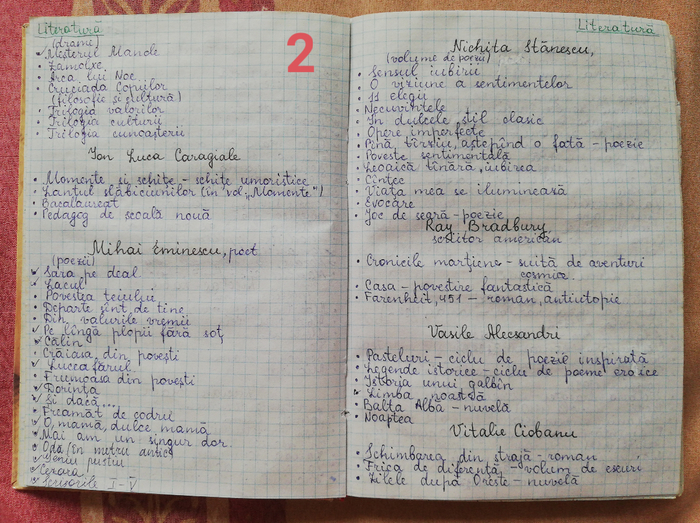 Literatură
2
(drame)
Meșterul Manole
Zamolxe
Arca lui Noe
Cruciada Copiilor
(filosofie și cultură)
Trilogia valorilor
Trilogia culturii
Trilogia cunoașterii
Ion Luca Caragiale
Momente și schițe - schițe umoristice
Lanțul slăbiciunilor (în vol. „Momente")
Bacalaureat
Pedagog de școală nouă
Mihai Eminescu, poet
(poezii)
Sara pe deal
Lacul
Povestea teiului
Departe sînt de tine
Din valurile vremii
Pe lîngă plopii fără soț
Călin
Crăiasa din povești
Luceafărul
Frumoasa din povești
Dorința
Și dacă...
Freamăt de codru
O, mamă, dulce mamă
Mai am un singur dor
Oda (în metru antic)
Geniu pustiu
Cezara
Scrisorile I-V
Literatură
Nichita Stănescu,
(volume de poezii)
Sensul iubirii
O viziune a sentimentelor
11 elegii
Necuvintele
În dulcele stil clasic
Opere imperfecte
Pînă tîrziu, aștepînd o fată - poezie
Poveste sentimentală
Leoaică tînără, iubirea
Cîntec
Viața mea se iluminează
Evocare
Joc de seară - poezie
Ray Bradbury,
scriitor american
Cronicile marțiene - suită de aventuri
cosmice.
Casa - povestire fantastică
Farenheit, 451 - roman, antiutopie
Vasile Alecsandri
Pasteluri - ciclu de poezie inspirată
Legende istorice - ciclu de poeme eroice
Istoria unui galbîn
Limba noastră
Balta Albă - nuvelă
Noaptea
Vitalie Ciobanu
Schimbarea din strajă - roman
Frica de diferență - volum de eseuri
Zilele după Oreste - nuvelă